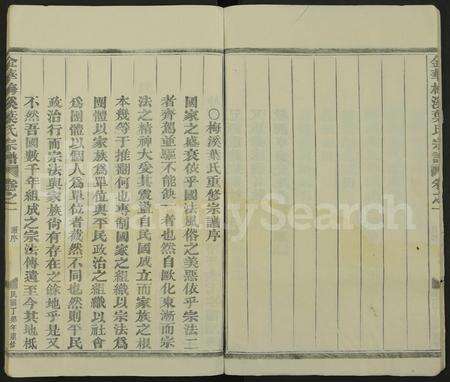 金華梅溪葉氏宗譜 卷之一
〇梅溪葉氏重修宗譜序
國家之盛衰依乎國法風俗之美惡依乎宗法二
者齊駕並驅不能缺一者也然自歐化東漸而宗
法之精神大受其震盪自民國成立而家族之根
本幾等于推翻何也專制國家之組織以宗法為
團體以家族為單位與平民政治之組織以社會
為團體以個人為單位者截然不同也然則平民
政治行而宗法與家族尚有存在之餘地乎是又
不然吾國數千年組成之宗法傳遺至今其地柢
金華梅溪葉氏宗譜 卷之一 序
民國丁年重修
MySearch